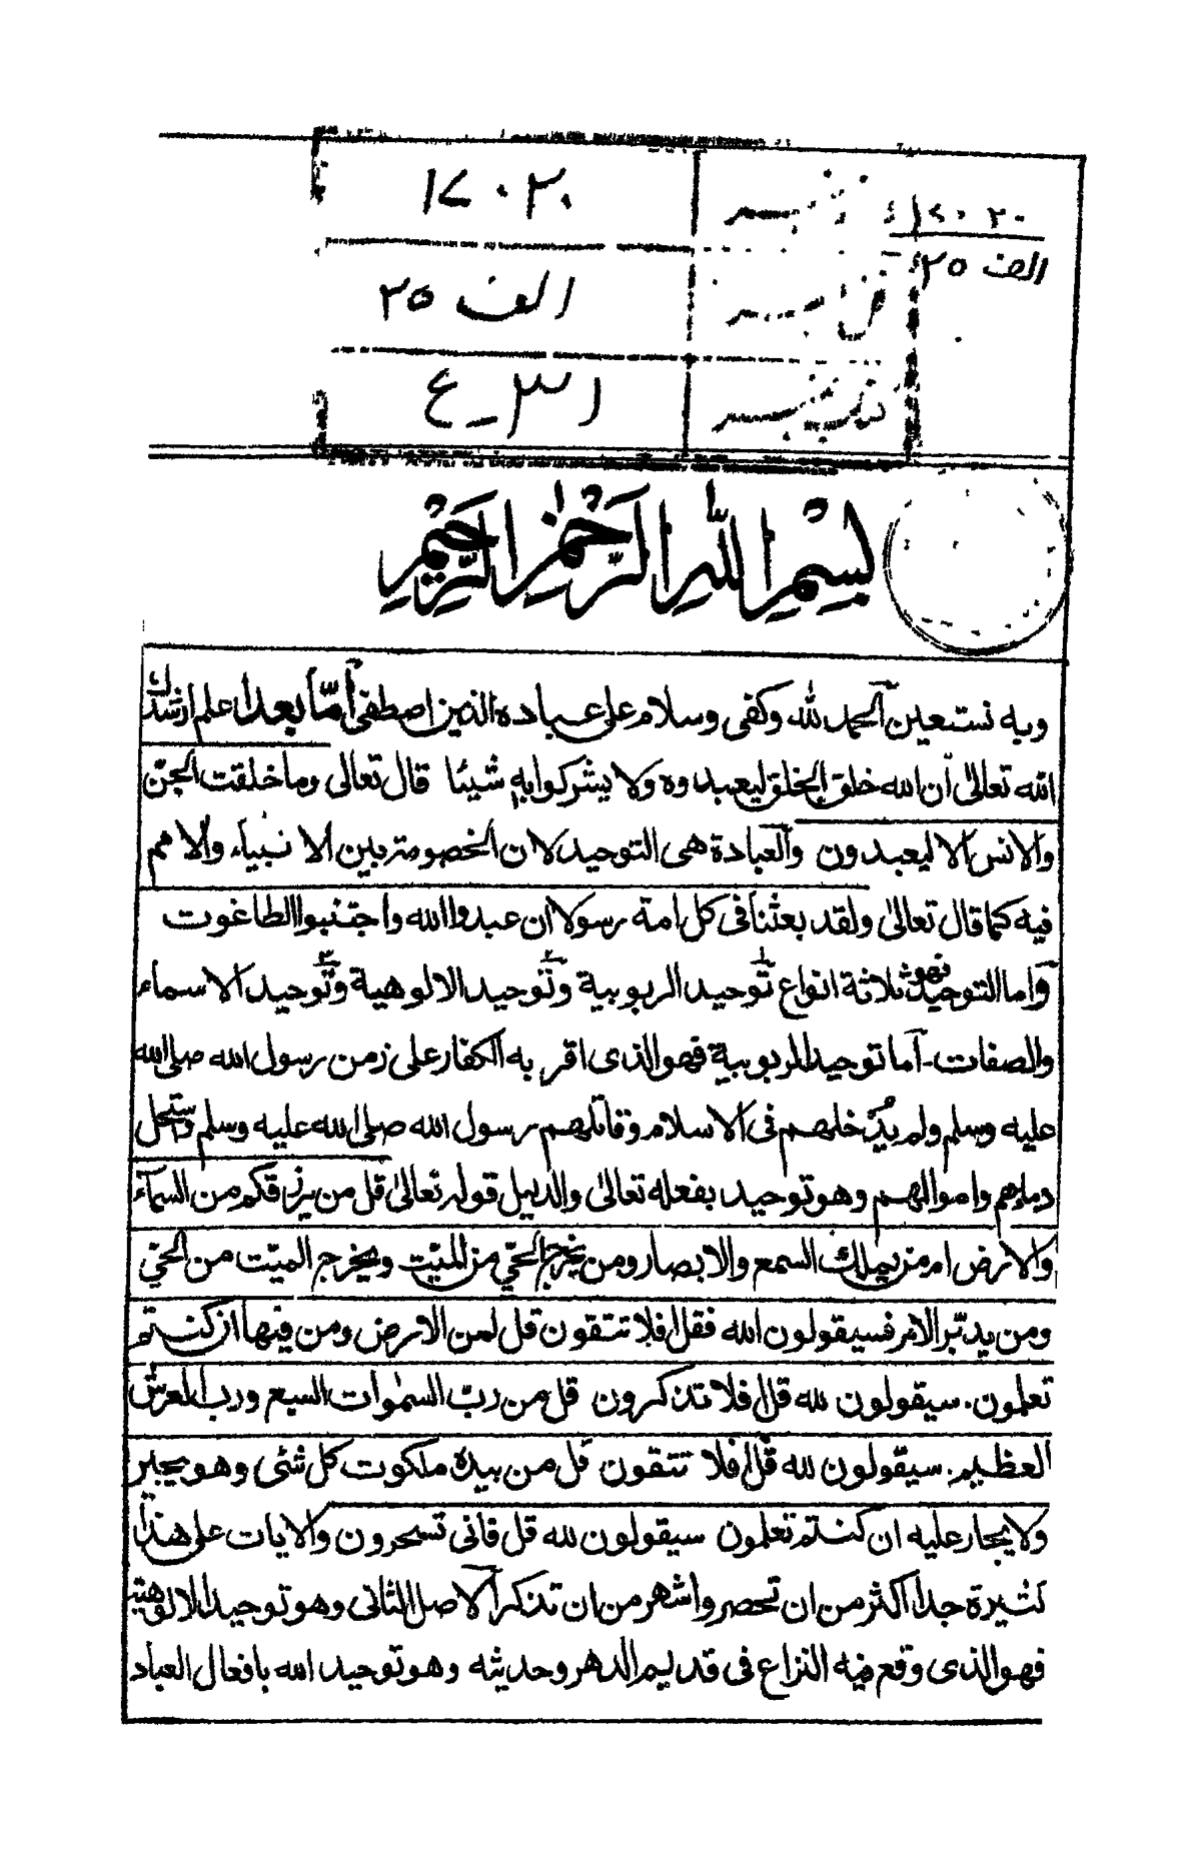 ١٢٠٣٠
١٢٠٢٠
نمبر
الف ٢٥
الف ٢٥
نمبر
نمبر
بِسْمِ اللّٰهِ الرَّحْمٰنِ الرَّحِيْمِ
وبه نستعين الحمد لله وكفى وسلام على عباده الذين اصطفى أمّا بعد اعلم ارشدك
الله تعالىٰ أن الله خلق الخلق ليعبدوه ولا يشركوا به شيئا قال تعالى وما خلقت الجنّ
والانس الا ليعبدون والعبادة هى التوحيد لان الخصومة بين الانبياء والامم
فيه كما قال تعالىٰ ولقد بعثنا فى كل امة رسولا ان عبدوا الله واجتنبوا الطاغوت
واما التوحيد فهو ثلاثة انواع توحيد الربوبية وتوحيد الالوهية وتوحيد الاسماء
والصفات - أما توحيد الربوبية فهو الذى اقر به الكفار على زمن رسول الله صلى الله
عليه وسلم ولم يدخلهم فى الاسلام وقاتلهم رسول الله صلى الله عليه وسلم واستحل
دماءهم واموالهم وهو توحيد بفعله تعالىٰ والدليل قوله تعالىٰ قل من يرزقكم من السماء
والارض ام من يملك السمع والابصار ومن يخرج الحيّ من الميّت ويخرج الميّت من الحيّ
ومن يدبّر الامر فسيقولون الله فقل افلا تتقون قل لمن الارض ومن فيها ان كنتم
تعلمون. سيقولون لله قل افلا تذكرون قل من ربّ السمٰوات السبع ورب العرش
العظيم. سيقولون لله قل افلا تتقون قل من بيده ملكوت كل شئى وهو يجير
ولا يجار عليه ان كنتم تعلمون سيقولون لله قل فانى تسحرون والايات على هذا
كثيرة جدا اكثر من ان تحصر واشهر من ان تذكر الاصل الثانى وهو توحيد الالوهية
فهو الذى وقع فيه النزاع فى قديم الدهر وحديثه وهو توحيد الله بافعال العباد